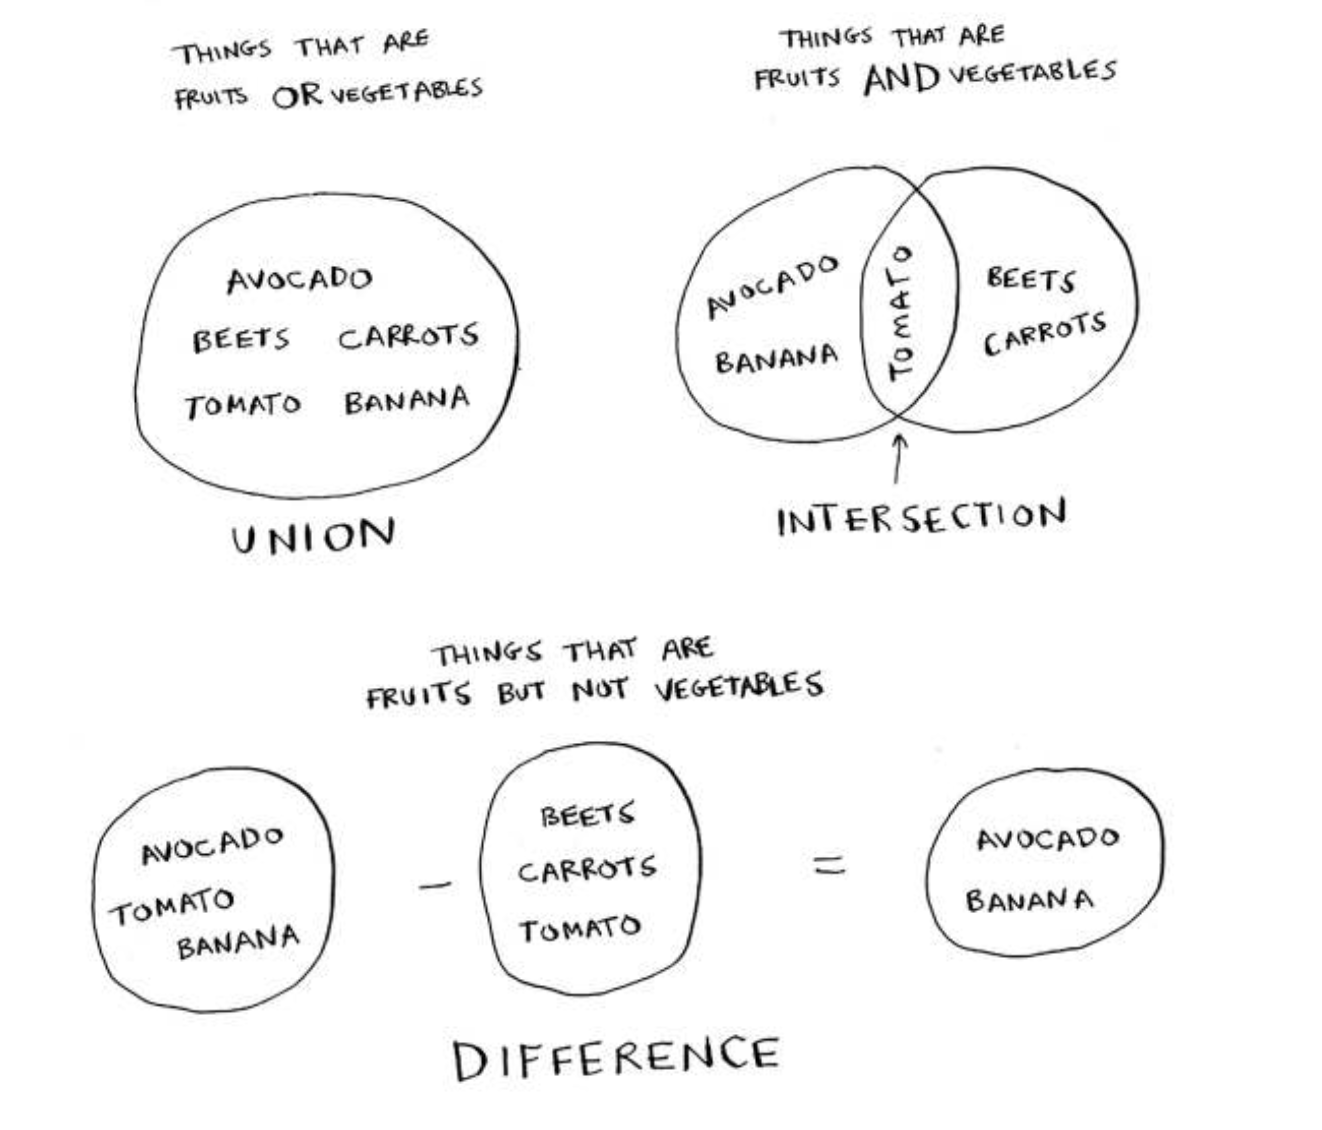 THINGS THAT ARE
FRUITS OR VEGETABLES
AVOCADO
BEETS CARROTS
TOMATO BANANA
UNION
THINGS THAT ARE
FRUITS AND VEGETABLES
AVOCADO
BANANA
TOMATO
BEETS
CARROTS
INTERSECTION
THINGS THAT ARE
FRUITS BUT NOT VEGETABLES
AVOCADO
TOMATO
BANANA
-
BEETS
CARROTS
TOMATO
=
AVOCADO
BANANA
DIFFERENCE